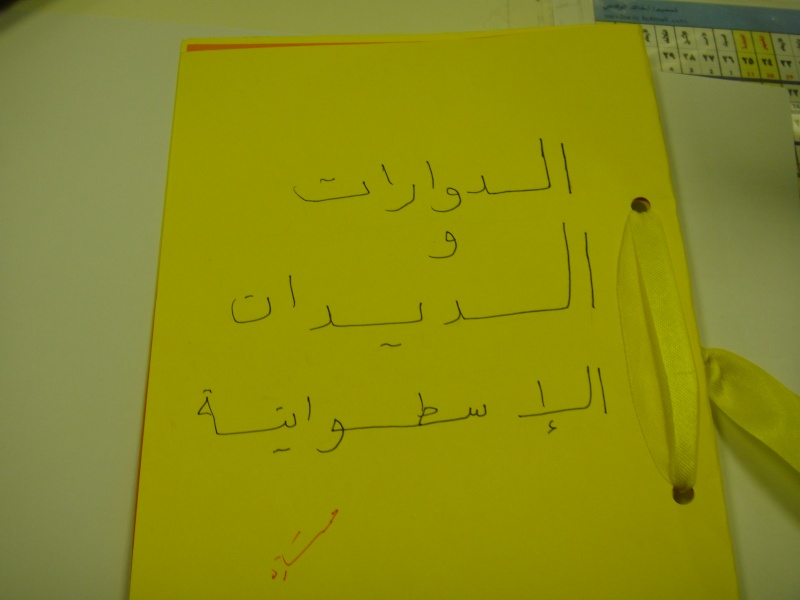 الدوارات
و
الديدان
الإسطوانية